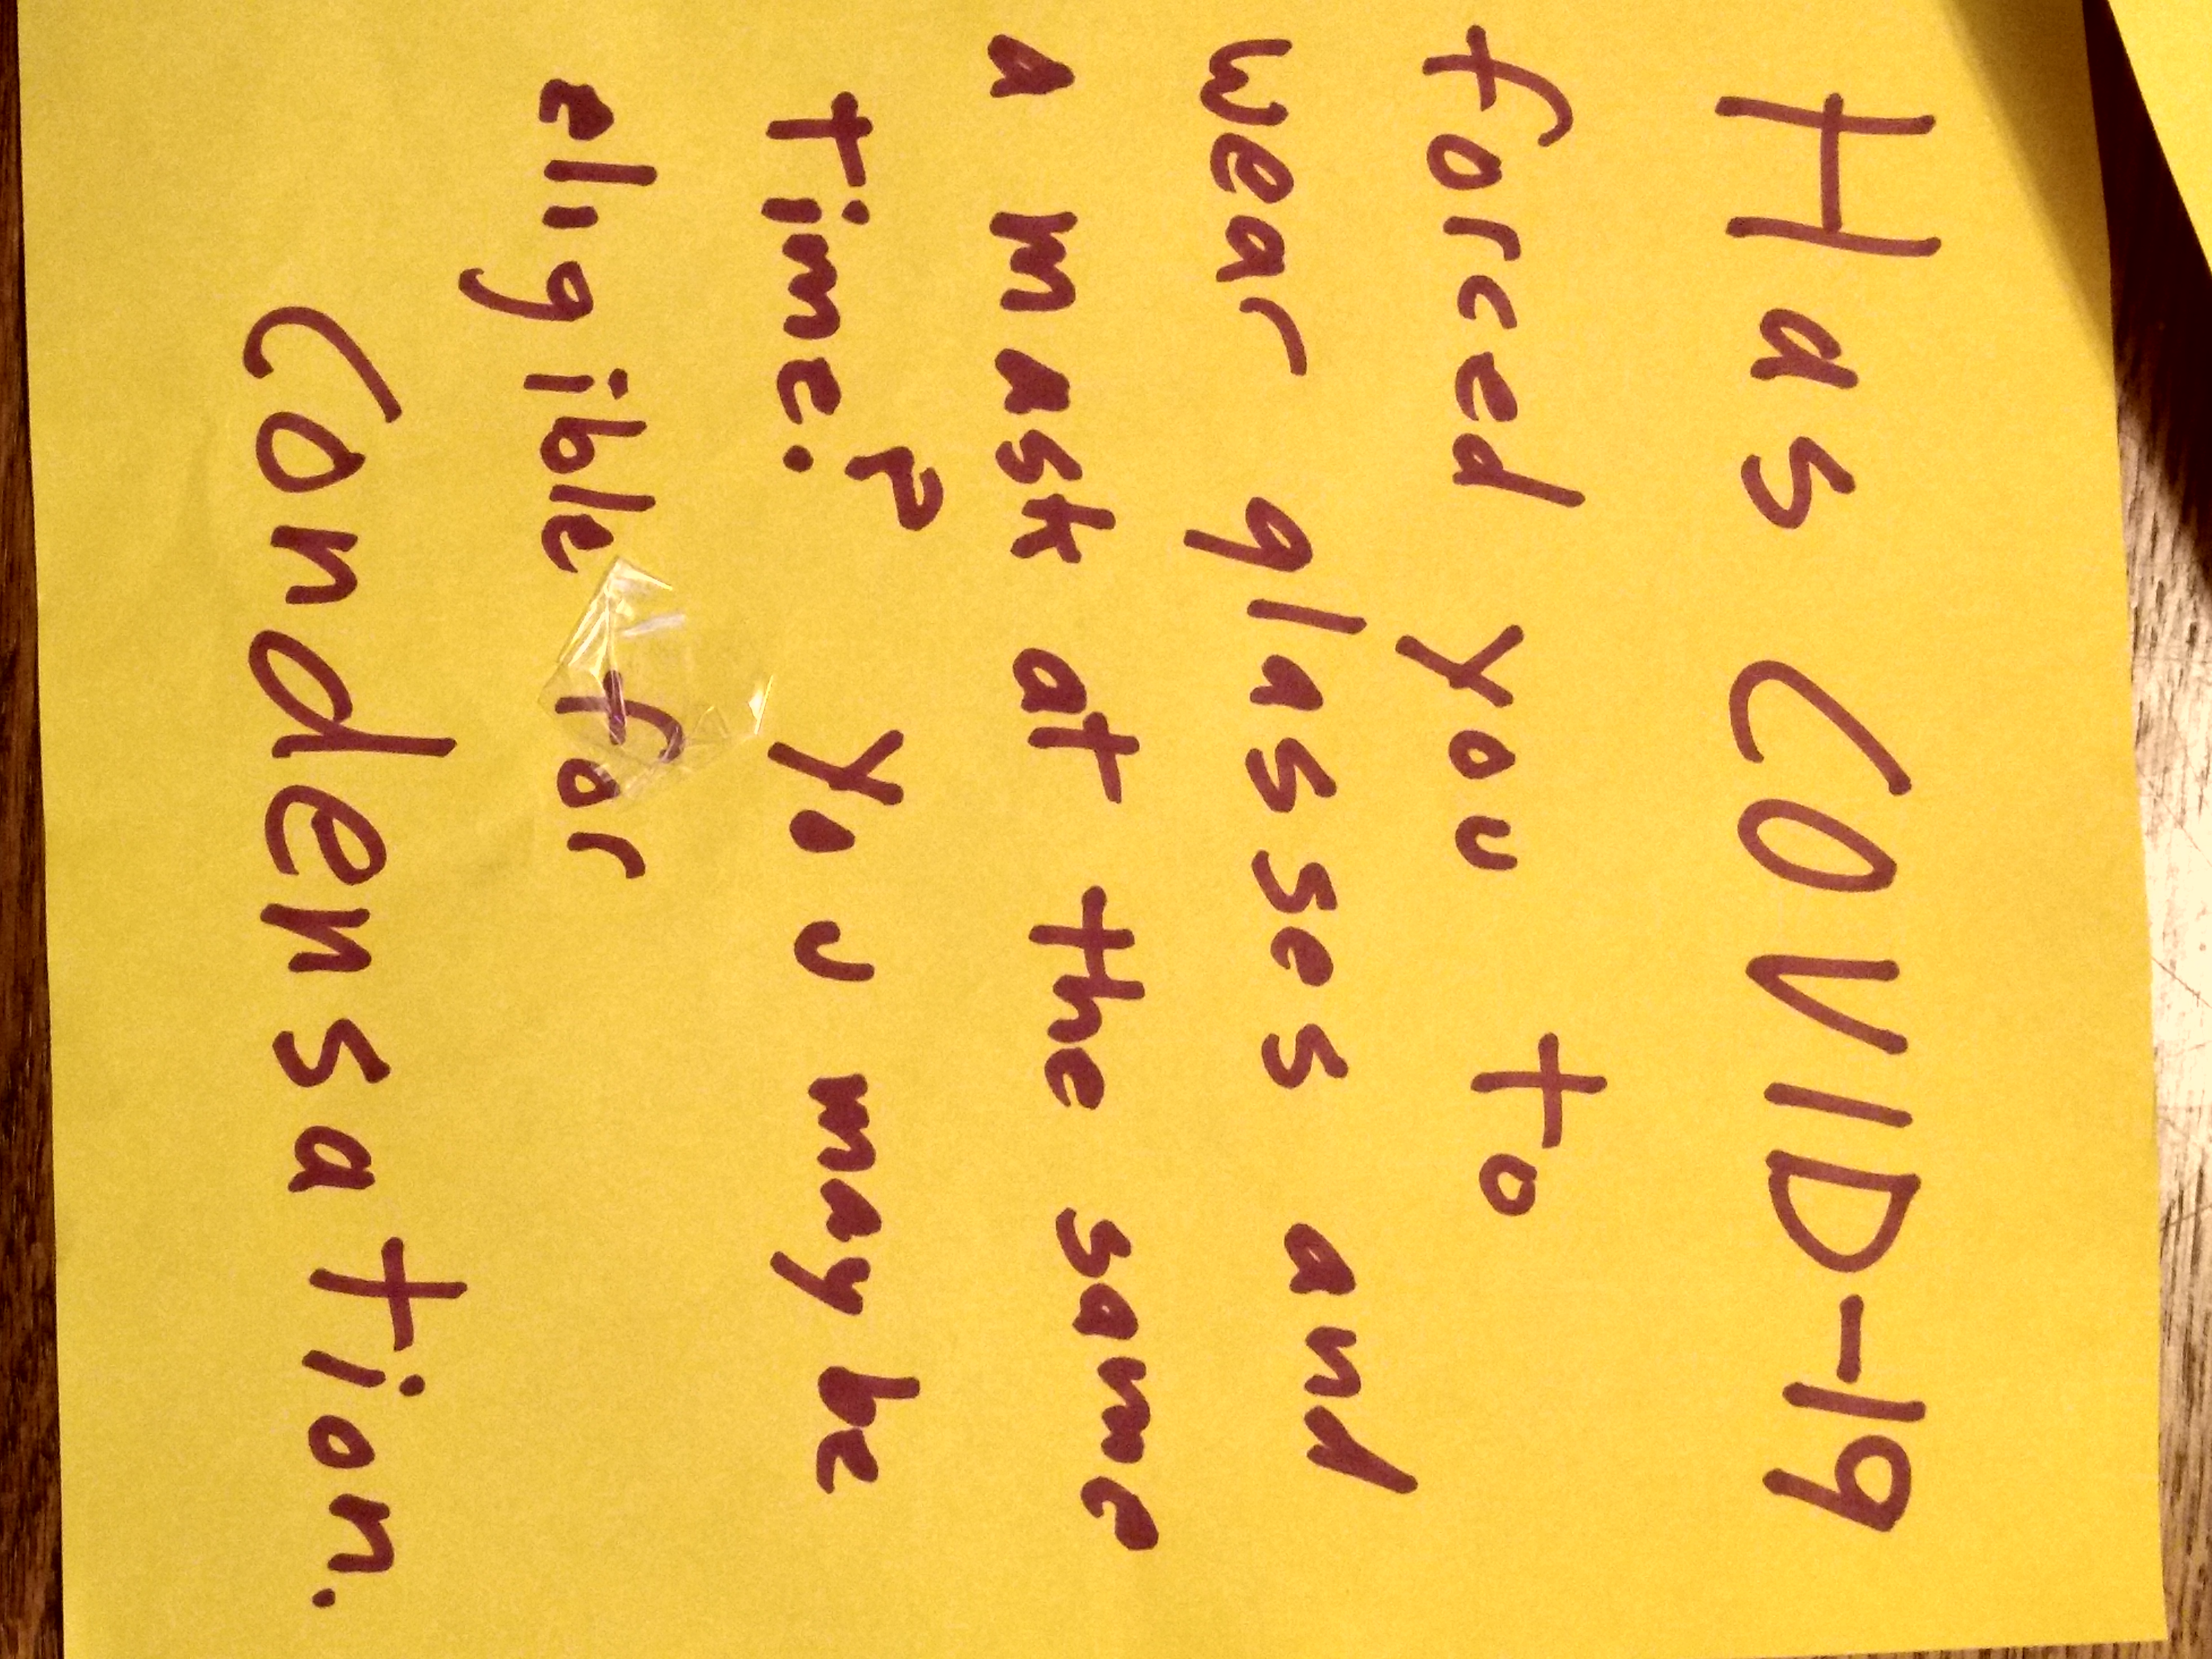 Has COVID-19
forced you to
wear glasses and
a mask at the same
time? You may be
eligible for
Condensation.